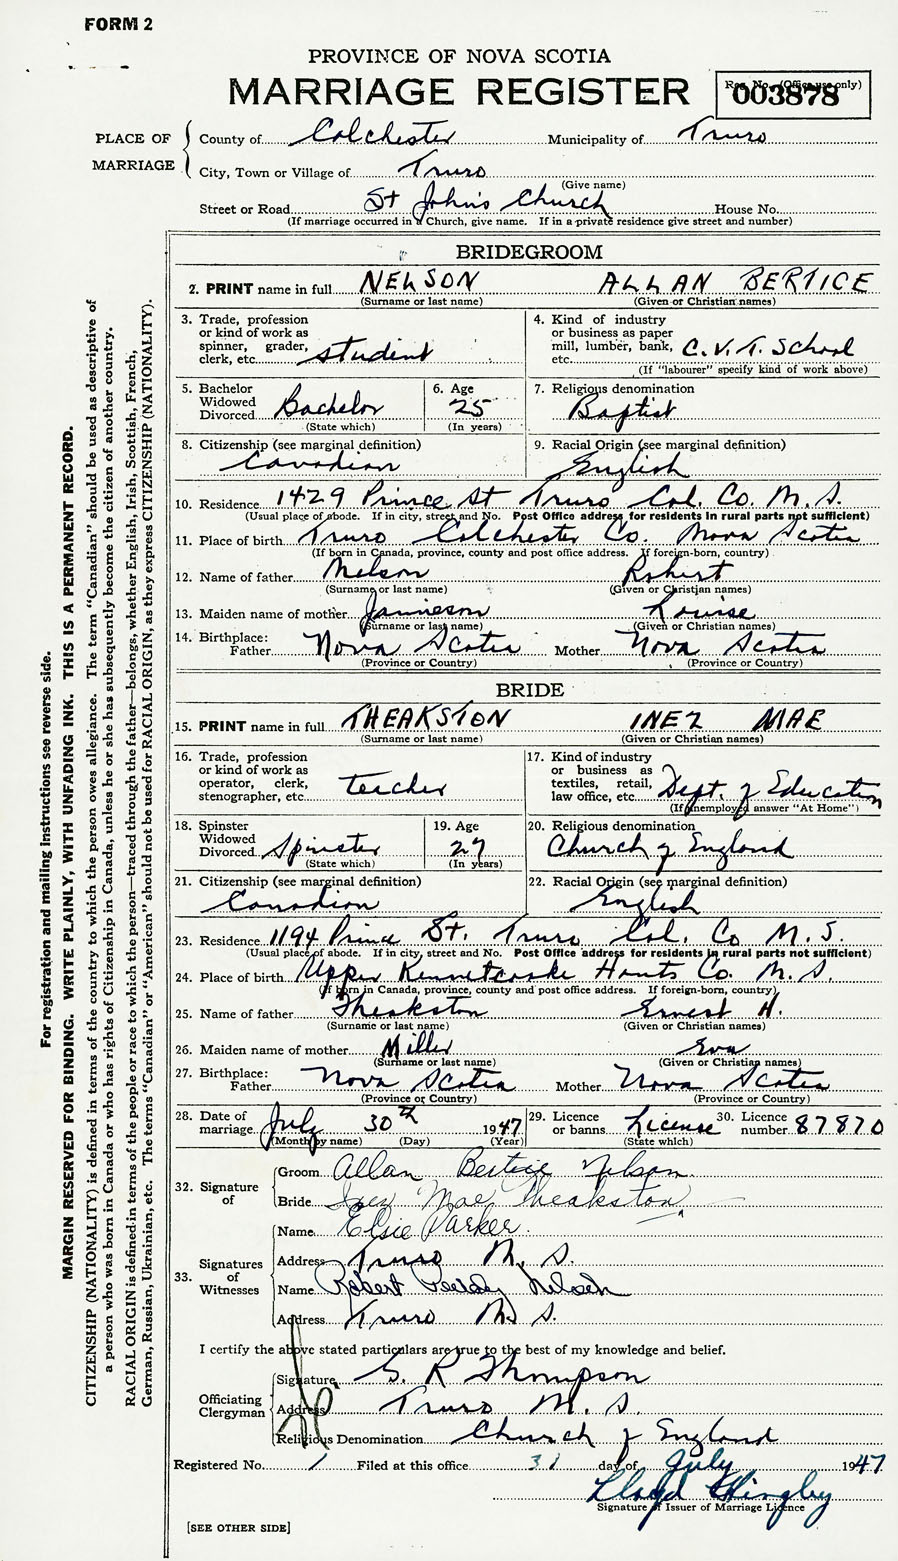 FORM 2
PROVINCE OF NOVA SCOTIA
MARRIAGE REGISTER
Reg. No. (Office use only)
003878
PLACE OF MARRIAGE
County of Colchester Municipality of Truro
City, Town or Village of Truro
(Give name)
Street or Road St John's Church House No.
(If marriage occurred in a Church, give name. If in a private residence give street and number)
BRIDEGROOM
2. PRINT name in full NELSON ALLAN BERTICE
(Surname or last name) (Given or Christian names)
3. Trade, profession or kind of work as spinner, grader, clerk, etc. student
4. Kind of industry or business as paper mill, lumber, bank, etc. C.V.T. School
(If "labourer" specify kind of work above)
5. Bachelor Widowed Divorced Bachelor
(State which)
6. Age 25
(In years)
7. Religious denomination Baptist
8. Citizenship (see marginal definition) Canadian
9. Racial Origin (see marginal definition) English
10. Residence 1429 Prince St Truro Col. Co. N.S.
(Usual place of abode. If in city, street and No. Post Office address for residents in rural parts not sufficient)
11. Place of birth Truro Colchester Co. Nova Scotia
(If born in Canada, province, county and post office address. If foreign-born, country)
12. Name of father Nelson Robert
(Surname or last name) (Given or Christian names)
13. Maiden name of mother Jamieson Louise
(Surname or last name) (Given or Christian names)
14. Birthplace: Father Nova Scotia Mother Nova Scotia
(Province or Country) (Province or Country)
BRIDE
15. PRINT name in full THEAKSTON INEZ MAE
(Surname or last name) (Given or Christian names)
16. Trade, profession or kind of work as operator, clerk, stenographer, etc. teacher
17. Kind of industry or business as textiles, retail, law office, etc. Dept. of Education
(If unemployed answer "At Home")
18. Spinster Widowed Divorced Spinster
(State which)
19. Age 27
(In years)
20. Religious denomination Church of England
21. Citizenship (see marginal definition) Canadian
22. Racial Origin (see marginal definition) English
23. Residence 1194 Prince St. Truro Col. Co N.S.
(Usual place of abode. If in city, street and No. Post Office address for residents in rural parts not sufficient)
24. Place of birth Upper Kennetcooke Hants Co. N.S.
(If born in Canada, province, county and post office address. If foreign-born, country)
25. Name of father Theakston Ernest H.
(Surname or last name) (Given or Christian names)
26. Maiden name of mother Miller Eva
(Surname or last name) (Given or Christian names)
27. Birthplace: Father Nova Scotia Mother Nova Scotia
(Province or Country) (Province or Country)
28. Date of marriage July 30th 1947
(Month by name) (Day) (Year)
29. Licence or banns License
(State which)
30. Licence number 87870
32. Signature of
Groom Allan Bertice Nelson
Bride Inez Mae Theakston
33. Signatures of Witnesses
Name Elsie Parker.
Address Truro N.S.
Name Robert Nelson
Address Truro N.S.
I certify the above stated particulars are true to the best of my knowledge and belief.
Officiating Clergyman
Signature G. R Thompson
Address Truro N.S.
Religious Denomination Church of England
Registered No. 1 Filed at this office 31 day of July 1947
Lloyd
Signature of Issuer of Marriage Licence
[SEE OTHER SIDE]
For registration and mailing instructions see reverse side.
MARGIN RESERVED FOR BINDING. WRITE PLAINLY, WITH UNFADING INK. THIS IS A PERMANENT RECORD.
CITIZENSHIP (NATIONALITY) is defined in terms of the country to which the person owes allegiance. The term "Canadian" should be used as descriptive of
a person who was born in Canada or who has rights of Citizenship in Canada, unless he or she has subsequently become the citizen of another country.
RACIAL ORIGIN is defined in terms of the people or race to which the person—traced through the father—belongs, whether English, Irish, Scottish, French,
German, Russian, Ukrainian, etc. The terms "Canadian" or "American" should not be used for RACIAL ORIGIN, as they express CITIZENSHIP (NATIONALITY).